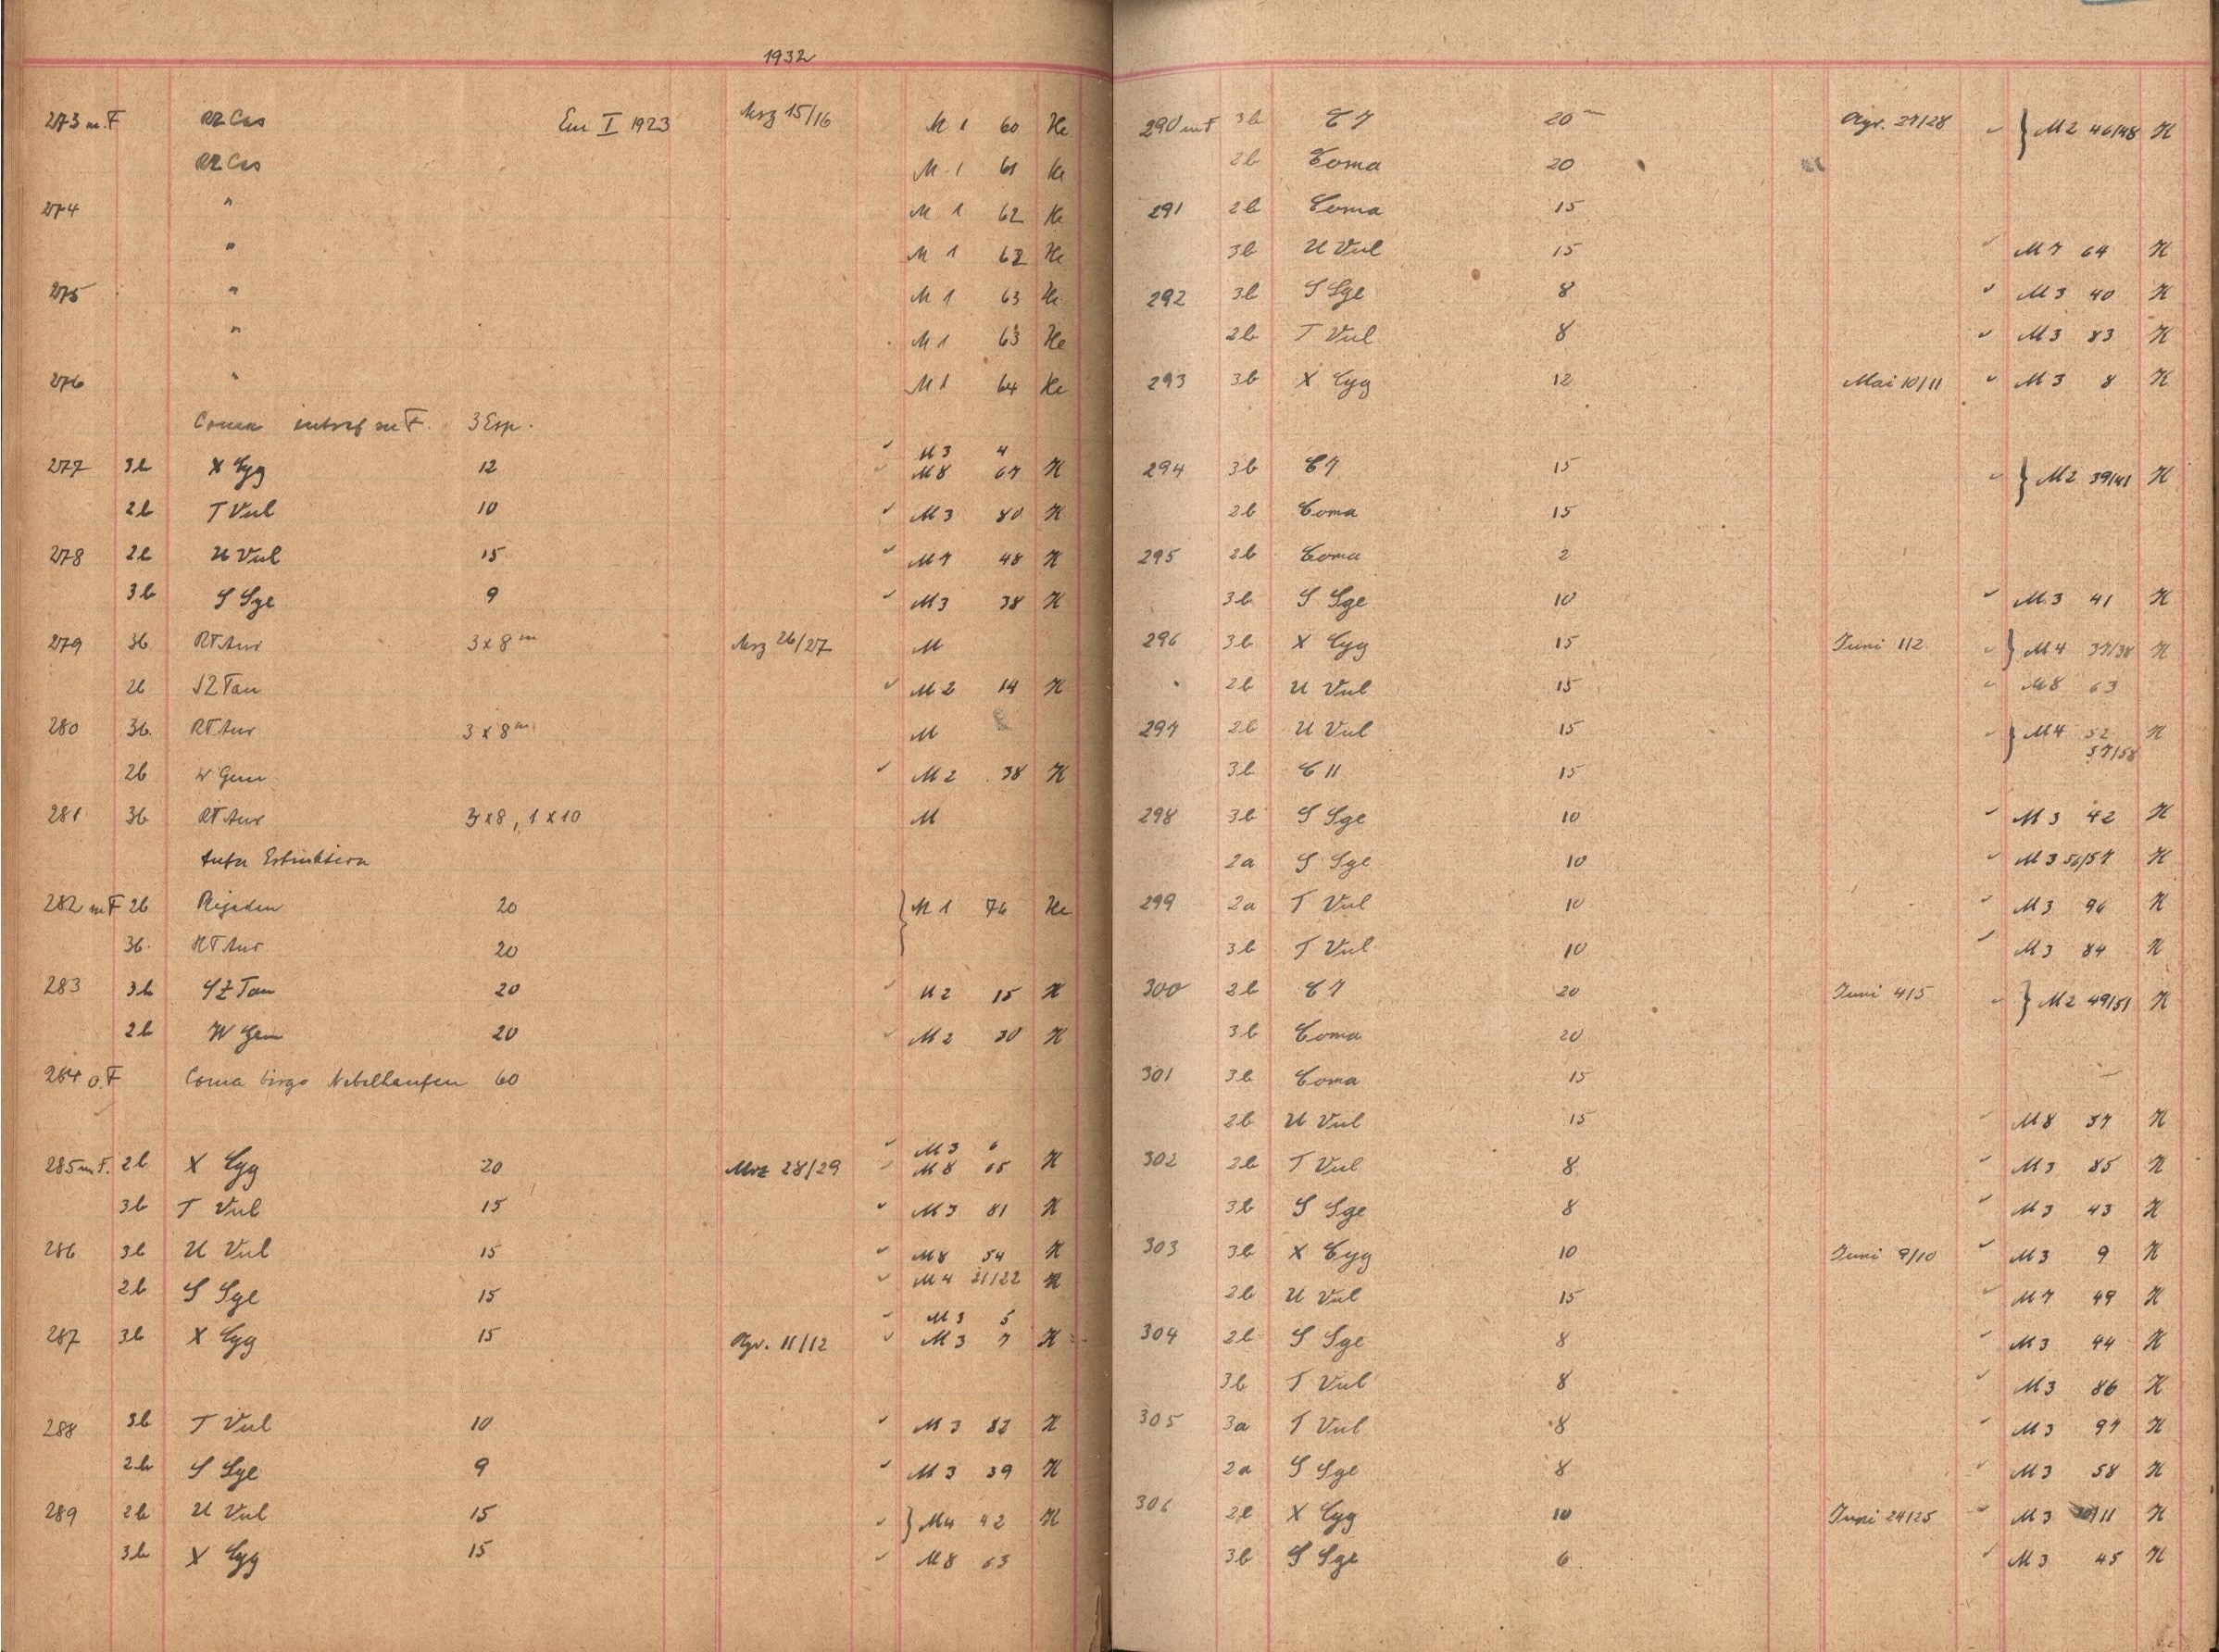 1932
273 m.F RZ Cas Em I 1923 Mrz 15/16 M 1 60 He
RZ Cas M 1 61 He
274 " M 1 62 He
" M 1 62 He
275 " M 1 63 He
" M 1 63 He
276 " M 1 64 He
Coma intraf m F. 3 Exp.
✓ M 3 4
277 3b X Cyg 12 ✓ M 8 67 H
2b T Vul 10 ✓ M 3 80 H
278 2b U Vul 15 ✓ M 7 48 H
3b S Sge 9 ✓ M 3 38 H
279 3b RT Aur 3 x 8 m Mrz 26/27 M
2b SZ Tau ✓ M 2 14 H
280 3b. RT Aur 3 x 8 m M
2b W Gem ✓ M 2 38 H
281 3b RT Aur 3x8, 1 x 10 M
282 m F 2b Plejaden 20 } M 1 76 He
3b. RT Aur 20
283 3b SZ Tau 20 ✓ M 2 15 H
2b W Gem 20 ✓ M 2 30 H
284 o.F Coma Virgo Nebelhaufen 60
✓ M 3 6
285 m F. 2b X Cyg 20 Mrz 28/29 ✓ M 8 65 H
3b T Vul 15 ✓ M 3 81 H
286 3b U Vul 15 ✓ M 8 54 H
✓ M 4 21/22 H
2b S Sge 15
✓ M 3 5
287 3b X Cyg 15 Apr. 11/12 ✓ M 3 7 H
288 3b T Vul 10 ✓ M 3 82 H
2b S Sge 9 ✓ M 3 39 H
289 2b U Vul 15 ✓ } M4 42 H
3b X Cyg 15 ✓ M 8 63
290 m F 3b C 7 20 m Apr. 27/28 ✓ } M 2 46/48 H
2b Coma 20
291 2b Coma 15
3b U Vul 15 ✓ M 7 64 H
292 3b S Sge 8 ✓ M 3 40 H
2b T Vul 8 ✓ M 3 83 H
293 3b X Cyg 12 Mai 10/11 ✓ M 3 8 H
294 3b C 7 15 ✓ } M2 39/41 H
2b Coma 15
295 2b Coma 2
3b S Sge 10 ✓ M 3 41 H
296 3b X Cyg 15 Juni 1/2 ✓ } M 4 37/38 H
2b U Vul 15 ✓ M8 63
297 2b U Vul 15 ✓ } M4 52 H
57/58
3b C 11 15
298 3b S Sge 10 ✓ M 3 42 H
2a S Sge 10 ✓ M 3 56/57 H
299 2a T Vul 10 ✓ M 3 96 H
3b T Vul 10 ✓ M 3 84 H
300 2b C 7 20 Juni 4/5 ✓ } M 2 49/51 H
3b Coma 20
301 3b Coma 15 —
2b U Vul 15 ✓ M8 57 H
302 2b T Vul 8 ✓ M 3 85 H
3b S Sge 8 ✓ M 3 43 H
303 3b X Cyg 10 Juni 9/10 ✓ M 3 9 H
2b U Vul 15 ✓ M 7 49 H
304 2b S Sge 8 ✓ M 3 44 H
3b T Vul 8 ✓ M 3 86 H
305 3a T Vul 8 ✓ M 3 97 H
2a S Sge 8 ✓ M 3 58 H
306 2b X Cyg 10 Juni 24/25 ✓ M 3 11 H
3b S Sge 6 ✓ M 3 45 H